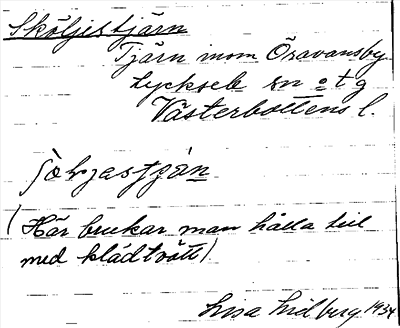 Sköljistjärn
Tjärn inom Öravansby
Lycksele sn o t g
Västerbottens l.
(Här brukar man hålla till
med klädtvätt)
Lisa Lidberg 1934